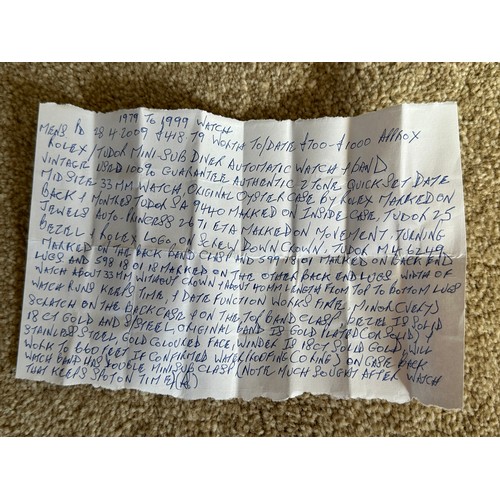 1979 TO 1999 WATCH
MENS PD 28 4 2009 $418 79 WORTH TO/DATE $700-$1000 APPROX
ROLEX/TUDOR MINI-SUB DIVER AUTOMATIC WATCH & BAND
VINTAGE USED 100% GUARANTEE AUTHENTIC 2 TONE QUICKSET DATE
MIDSIZE 33MM WATCH, ORIGINAL OYSTER CASE BY ROLEX MARKED ON
BACK & MONTRES TUDOR SA 9440 MARKED ON INSIDE CASE, TUDOR 25
JEWELS AUTO-PRINCESS 2671 ETA MARKED ON MOVEMENT, TURNING
BEZEL & ROLEX LOGO, ON SCREW DOWN CROWN, TUDOR 6249
MARKED ON THE BACK BAND CLASP AND 599 18 01 MARKED ON BACK END
LUGS AND 599 18 01 18 MARKED ON THE OTHER BACK END LUGS WIDTH OF
WATCH ABOUT 33MM WITHOUT CROWN & ABOUT 40MM LENGTH FROM TOP TO BOTTOM LUGS
WATCH RUNS KEEPS TIME, & DATE FUNCTION WORKS FINE, MINOR (VERY)
SCRATCH ON THE BACKCASE & ON THE TOP BAND CLASP BEZEL IS SOLID
18 CT GOLD AND S/STEEL, ORIGINAL BAND IS GOLD PLATED (OR SOLID) &
STAINLESS STEEL GOLD COLOURED FACE, WINDER IS 18CT SOLID GOLD, WILL
WORK TO 660 FEET IF CONFIRMED WATER/ROOFING (O RING) ON CASE BACK
WATCH BAND HAS DOUBLE MINI SUB CLASP (NOTE MUCH SOUGHT AFTER WATCH
THAT KEEPS SPOT ON TIME)